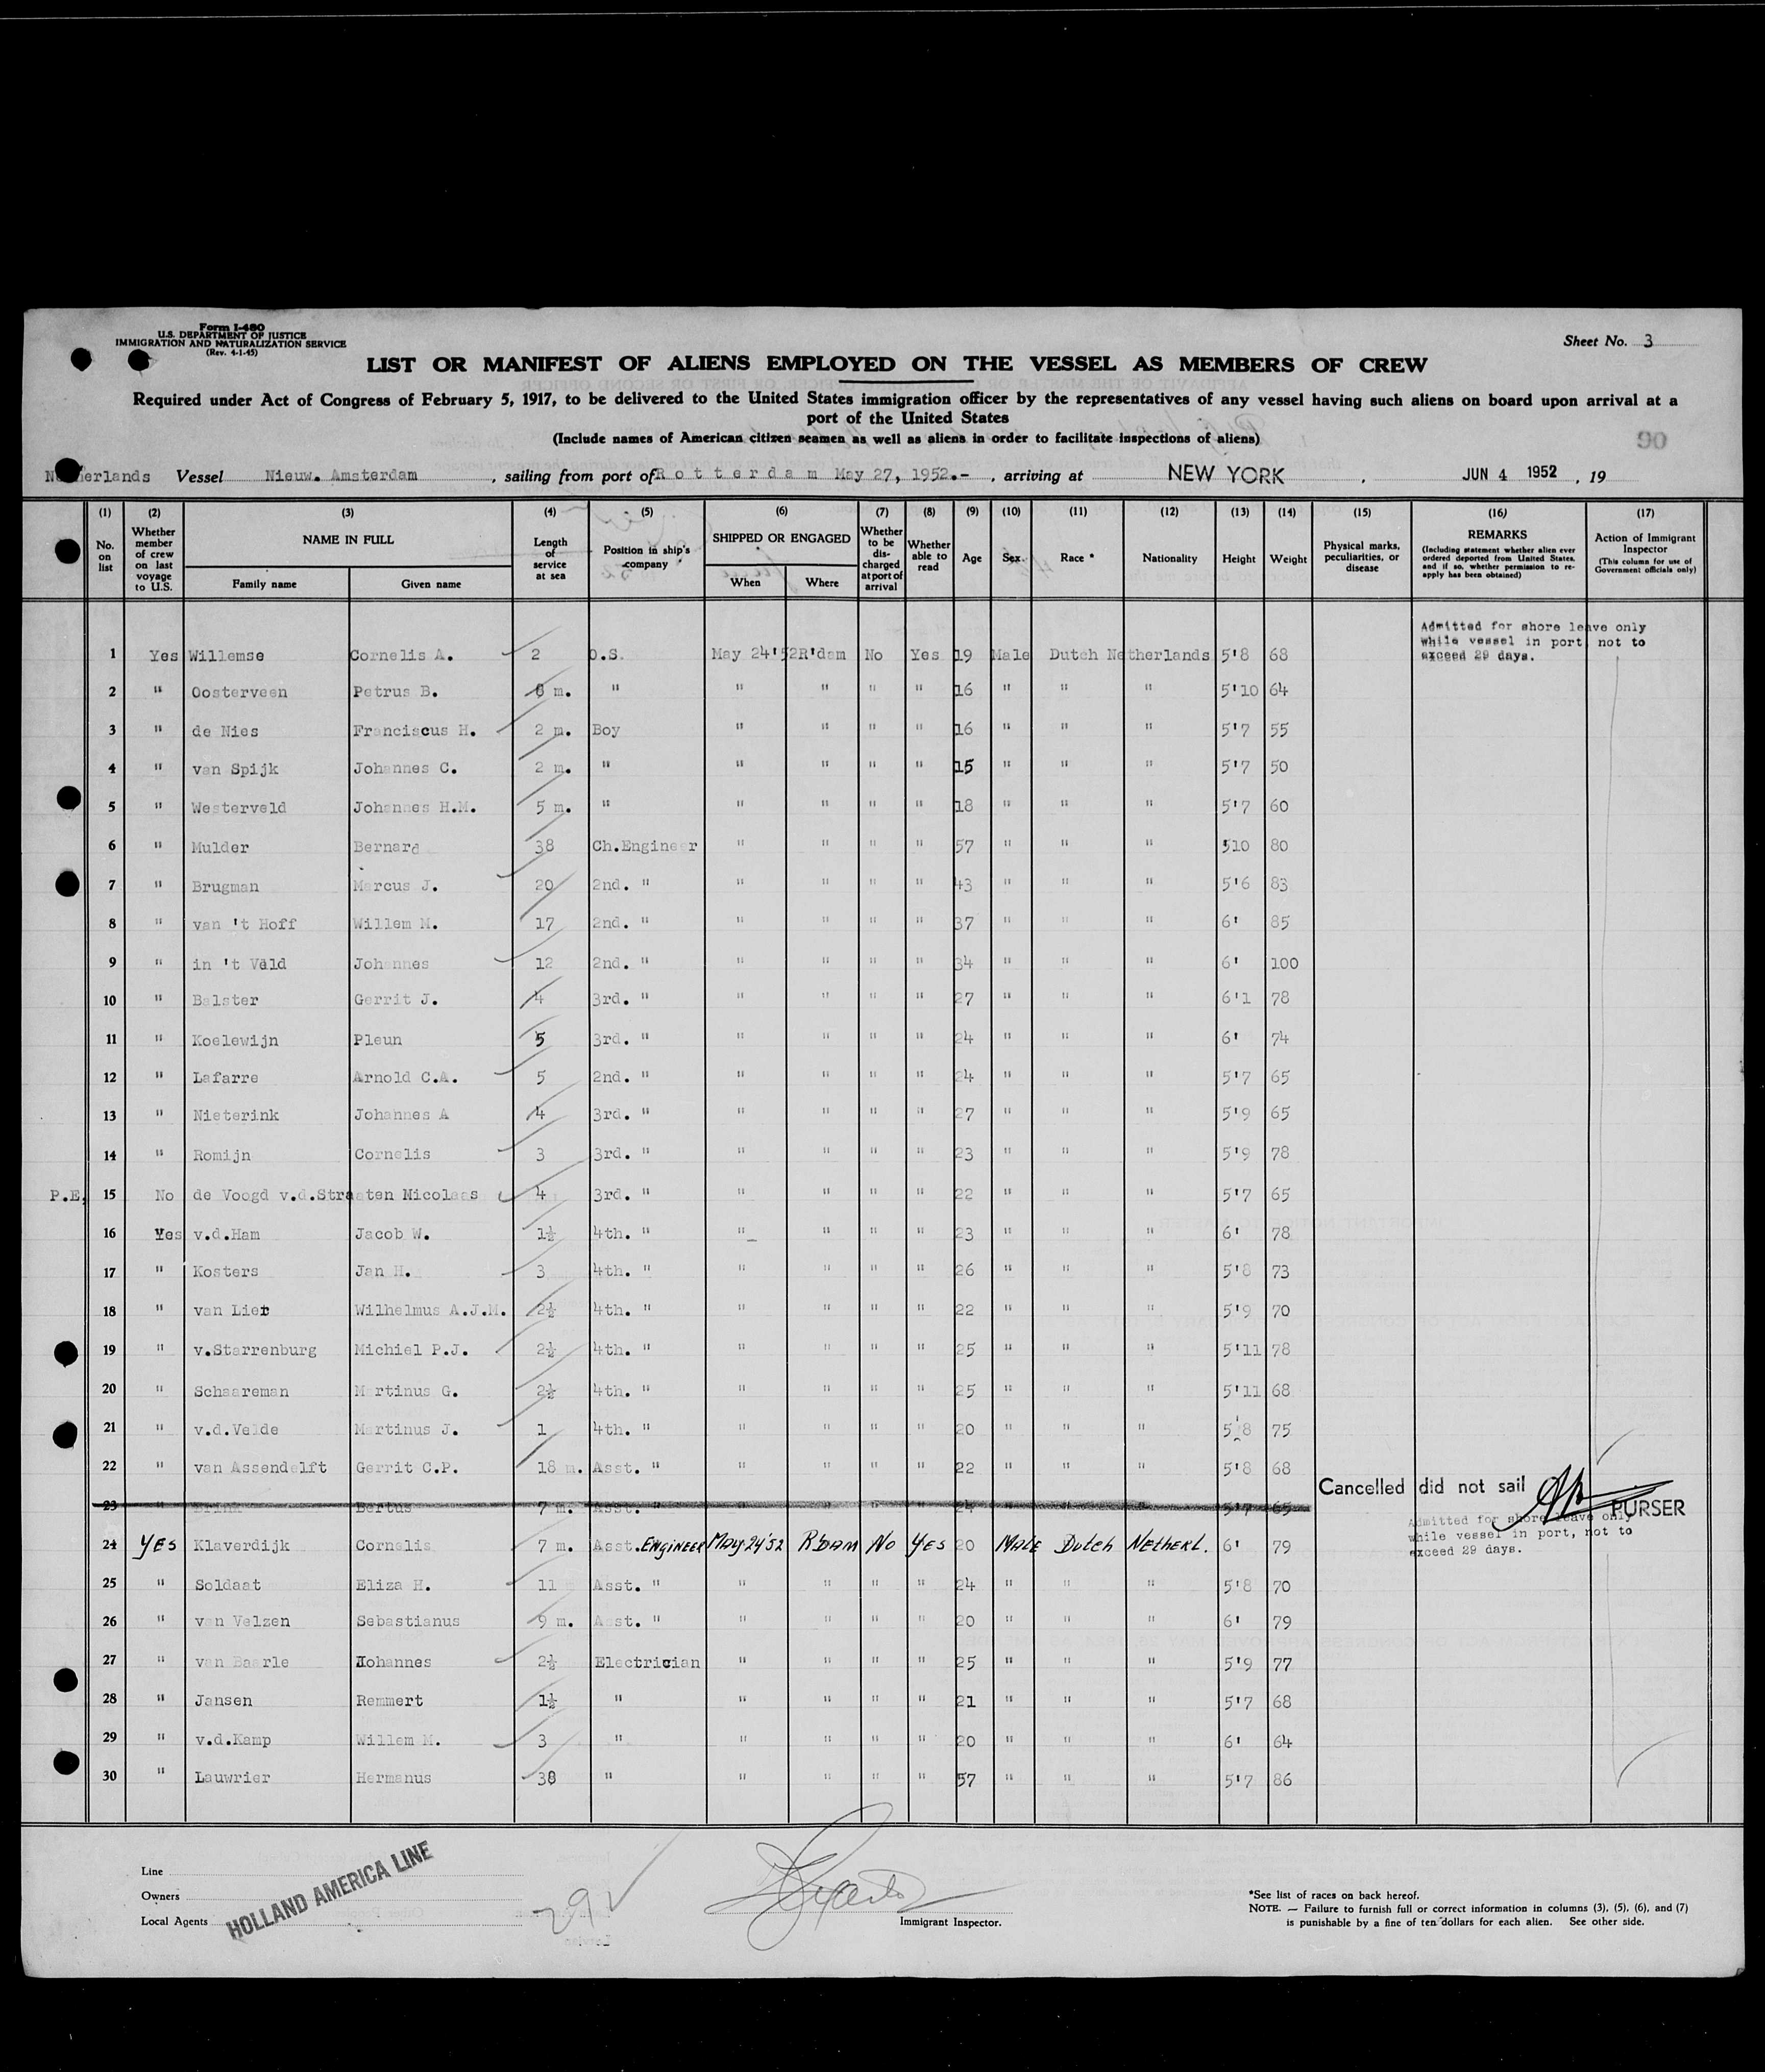 Form I-480
U.S. DEPARTMENT OF JUSTICE
IMMIGRATION AND NATURALIZATION SERVICE
(Rev. 4-1-45)
Sheet No. 3
LIST OR MANIFEST OF ALIENS EMPLOYED ON THE VESSEL AS MEMBERS OF CREW
Required under Act of Congress of February 5, 1917, to be delivered to the United States immigration officer by the representatives of any vessel having such aliens on board upon arrival at a
port of the United States
(Include names of American citizen seamen as well as aliens in order to facilitate inspections of aliens)
Netherlands Vessel Nieuw. Amsterdam, sailing from port of Rotterdam May 27, 1952.-, arriving at NEW YORK, JUN 4 1952, 19
(1) No. on list
(2) Whether member of crew on last voyage to U.S.
(3) NAME IN FULL Family name Given name
(4) Length of service at sea
(5) Position in ship's company
(6) SHIPPED OR ENGAGED When Where
(7) Whether to be discharged at port of arrival
(8) Whether able to read
(9) Age
(10) Sex
(11) Race *
(12) Nationality
(13) Height
(14) Weight
(15) Physical marks, peculiarities, or disease
(16) REMARKS (Including statement whether alien ever ordered deported from United States, and if so, whether permission to re-apply has been obtained)
(17) Action of Immigrant Inspector (This column for use of Government officials only)
Admitted for shore leave only
while vessel in port, not to
exceed 29 days.
1 Yes Willemse Cornelis A. 2 O.S. May 24'52 R'dam No Yes 19 Male Dutch Netherlands 5'8 68
2 " Oosterveen Petrus B. 8 m. " " " " " 16 " " " 5'10 64
3 " de Nies Franciscus H. 2 m. Boy " " " " 16 " " " 5'7 55
4 " van Spijk Johannes C. 2 m. " " " " " 15 " " " 5'7 50
5 " Westerveld Johannes H.M. 5 m. " " " " " 18 " " " 5'7 60
6 " Mulder Bernard 38 Ch.Engineer " " " " 57 " " " 510 80
7 " Brugman Marcus J. 20 2nd. " " " " " 43 " " " 5'6 83
8 " van 't Hoff Willem M. 17 2nd. " " " " " 37 " " " 6' 85
9 " in 't Veld Johannes 12 2nd. " " " " " 34 " " " 6' 100
10 " Balster Gerrit J. 4 3rd. " " " " " 27 " " " 6'1 78
11 " Koelewijn Pleun 5 3rd. " " " " " 24 " " " 6' 74
12 " Lafarre Arnold C.A. 5 2nd. " " " " " 24 " " " 5'7 65
13 " Nieterink Johannes A 4 3rd. " " " " " 27 " " " 5'9 65
14 " Romijn Cornelis 3 3rd. " " " " " 23 " " " 5'9 78
P.E. 15 No de Voogd v.d.Straaten Nicolaas 4 3rd. " " " " " 22 " " " 5'7 65
16 Yes v.d.Ham Jacob W. 1½ 4th. " " " " " 23 " " " 6' 78
17 " Kosters Jan H. 3 4th. " " " " " 26 " " " 5'8 73
18 " van Lier Wilhelmus A.J.M. 2½ 4th. " " " " " 22 " " " 5'9 70
19 " v.Starrenburg Michiel P.J. 2½ 4th. " " " " " 25 " " " 5'11 78
20 " Schaareman Martinus G. 2½ 4th. " " " " " 25 " " " 5'11 68
21 " v.d.Velde Martinus J. 1 4th. " " " " " 20 " " " 5'8 75
22 " van Assendelft Gerrit C.P. 18 m. Asst. " " " " " 22 " " " 5'8 68
Cancelled did not sail PURSER
23 " Brink Bertus 7 m. Asst. " " " " " 24 " " " 5'7 65
Admitted for shore leave only
while vessel in port, not to
exceed 29 days.
24 YES Klaverdijk Cornelis 7 m. Asst. ENgiNeeR MAY 24'52 R'DAM No YES 20 MALE DutcH NetHerL. 6' 79
25 " Soldaat Eliza H. 11 Asst. " " " " " 24 " " " 5'8 70
26 " van Velzen Sebastianus 9 m. Asst. " " " " " 20 " " " 6' 79
27 " van Baarle Johannes 2½ Electrician " " " " 25 " " " 5'9 77
28 " Jansen Remmert 1½ " " " " " 21 " " " 5'7 68
29 " v.d.Kamp Willem M. 3 " " " " " 20 " " " 6' 64
30 " Lauwrier Hermanus 38 " " " " " 57 " " " 5'7 86
Line
Owners
Local Agents
HOLLAND AMERICA LINE
29
Immigrant Inspector.
*See list of races on back hereof.
NOTE. — Failure to furnish full or correct information in columns (3), (5), (6), and (7)
is punishable by a fine of ten dollars for each alien. See other side.